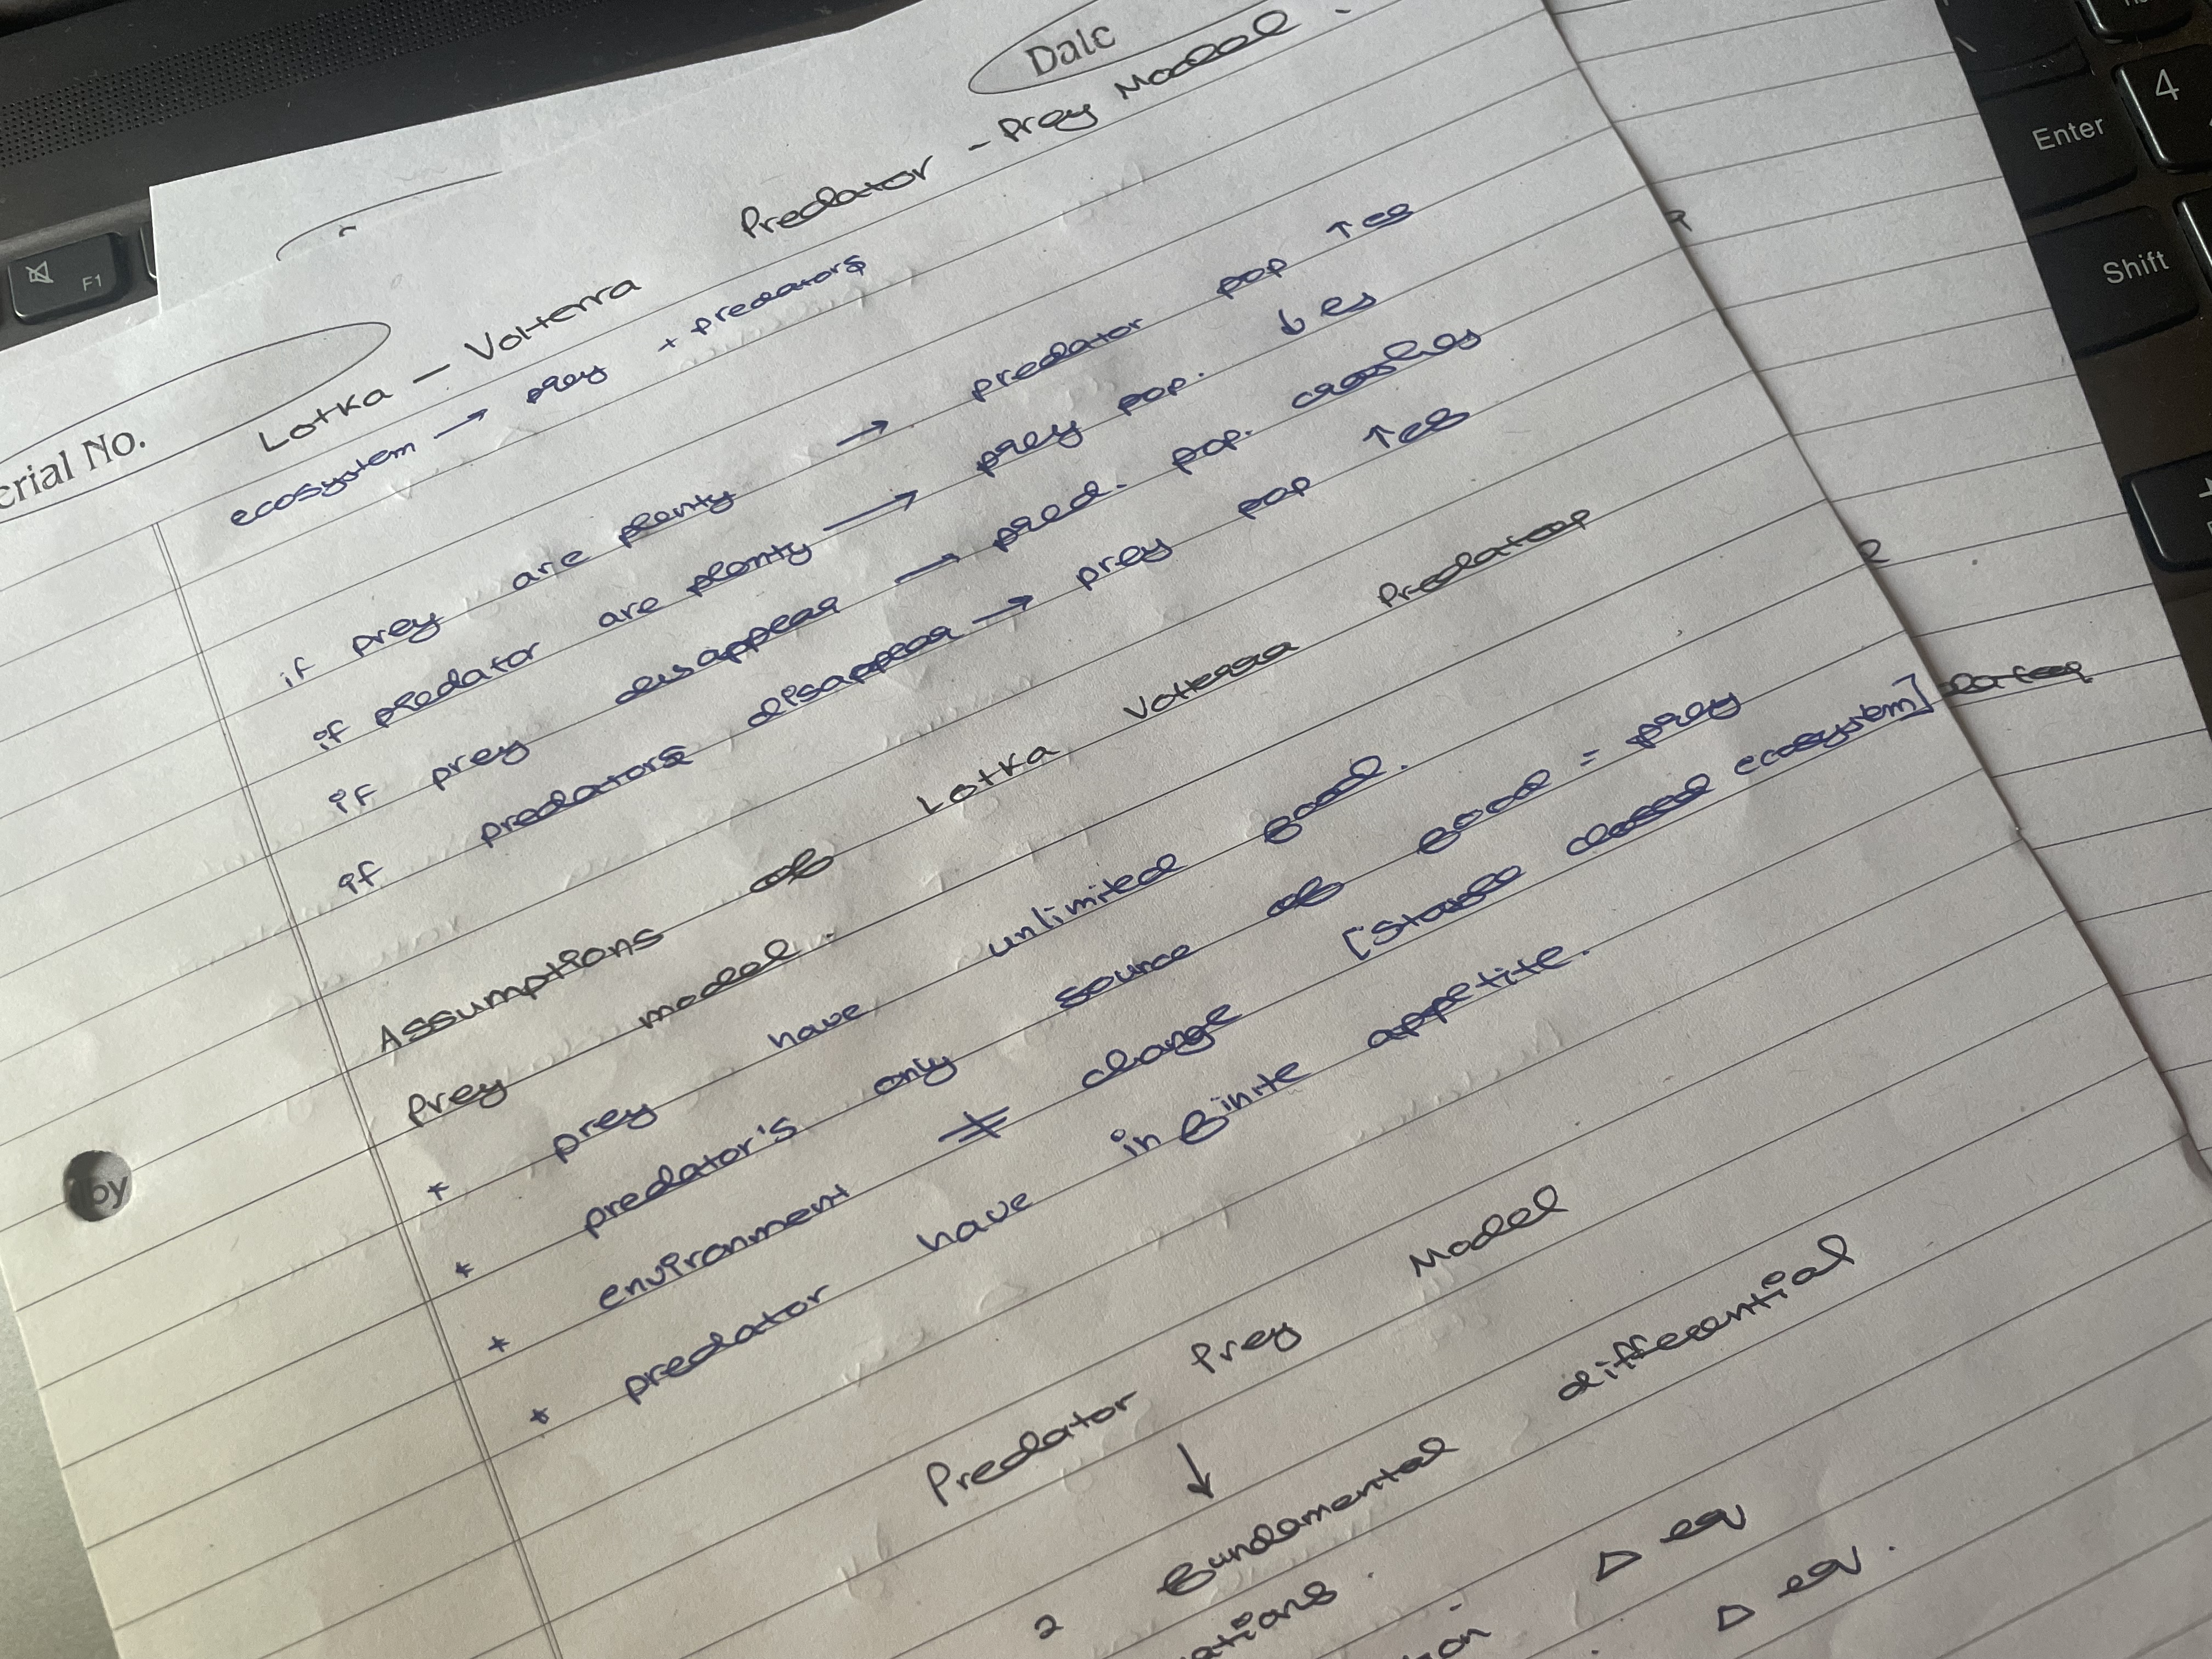 Date
Serial No.
Lotka - Volterra Predator - Prey Model.
ecosystem → prey + predators
if prey are plenty → predator pop ↑es
if predator are plenty → prey pop. ↓es
if prey disappear → pred. pop. crashes
if predators disappear → prey pop ↑es
Assumptions of Lotka Volterra Predator
Prey model.
* prey have unlimited food.
* predator's only source of food = prey
* environment ≠ change [Stable closed ecosystem]
* predator have infinite appetite.
Predator Prey Model
↓
2 fundamental differential
ations.
Δ eq
Δ eq.
F1
Enter
Shift
4